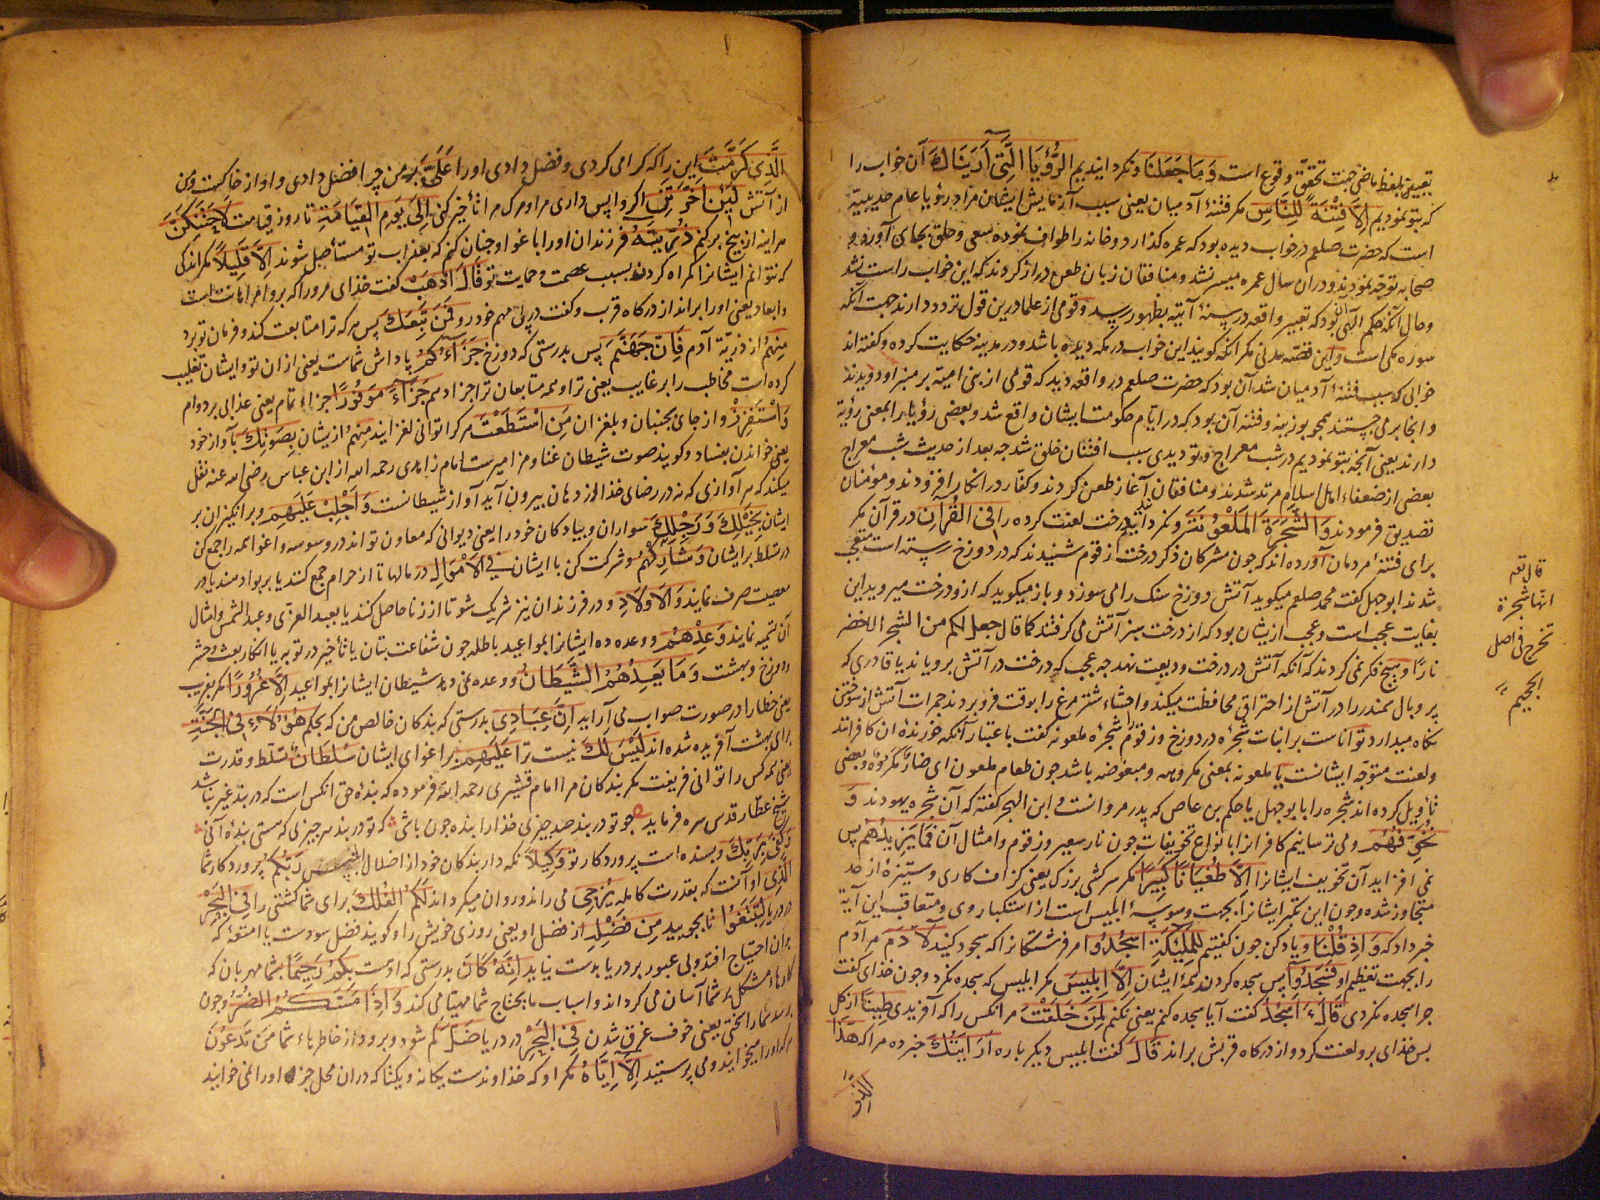 تعبیر بلفظ ماضی جهت تحقق وقوع است وَمَا جَعَلْنَا ونکردانیدیم الرُّؤْيَا الَّتِي أَرَيْنَاكَ آن خواب را
که بتو نمودیم إِلَّا فِتْنَةً لِلنَّاسِ مکر فتنهٔ آدمیان یعنی سبب آزمایش ایشان مراد رؤیا عام حدیبیه
است که حضرت صلعم در خواب دیده بود که عمره کذارد و خانه را طواف نموده سعی و حلق بجای آورد و
صحابه توجه نمودند و دران سال عمره میسر نشد و منافقان زبان طعن دراز کردند که این خواب راست نشد
و حال آنکه حکم الهی آن بود که تعبیر واقعه در سنهٔ آتیه بظهور رسد و قومی از علما درین قول تردد دارند جهت آنکه
سوره مکی است و این قصه مدنی مکر آنکه کویند این خواب در مکه دیده باشد و در مدینه حکایت کرده و کفته اند
خوابی که سبب فتنهٔ آدمیان شد آن بود که حضرت صلعم در واقعه دید که قومی از بنی امیه بر منبر او دویدند
و انجا برمی جستند همچو بوزینه و فتنه آن بود که در ایام حکومت ایشان واقع شد و بعضی رؤیا را بمعنی رؤیة
دارند یعنی آنچه بتو نمودیم در شب معراج و تو دیدی سبب افتتان خلق شد چه بعد از حدیث شب معراج
بعضی از ضعفاء اهل اسلام مرتد شدند و منافقان آغاز طعن کردند و کفار در انکار افزودند و مؤمنان
تصدیق فرمودند وَالشَّجَرَةَ الْمَلْعُونَةَ ونکردانیدیم درخت لعنت کرده را فِي الْقُرْآنِ در قرآن مکر
برای فتنهٔ مردمان آورده اند که چون مشرکان ذکر درخت از قوم شنیدند که در دوزخ رسته است متعجب
شدند ابوجهل کفت محمد صلعم میکوید آتش دوزخ سنک را می سوزد و باز میکوید که ازو درخت میروید این
بغایت عجب است و عجب از ایشان بود که از درخت سبز آتش می کرفتند کما قال جعل لکم من الشجر الاخضر
نارًا و هیچ فکر نمی کردند که آنکه آتش در درخت ودیعت نهد چه عجب که درخت در آتش برویاند یا قادری که
پر و بال سمندر را در آتش از احتراق محافظت میکند و احشاء شتر مرغ را بوقت فرو بردن جمرات آتش از سوختن
نکاه میدارد تواناست بر انبات شجره در دوزخ و زقوم شجره ملعونه کفت باعتبار آنکه خورندهٔ آن کافرانند
و لعنت متوجه ایشانست یا ملعونه بمعنی مکروهه و مبغوضه باشد چون طعام ملعون ای ضار مکروه و بعضی
تاویل کرده اند شجره را بابوجهل یا حکم بن عاص که پدر مروانست و ابن البحر کفته که آن شجره یهودند وَ
نُخَوِّفُهُمْ و می ترسانیم کافرانرا بانواع تخویفات چون نار سعیر و زقوم و امثال آن فَمَا يَزِيدُهُمْ پس
نمی افزاید آن تخویف ایشانرا إِلَّا طُغْيَانًا كَبِيرًا مکر سرکشی بزرک یعنی کزاف کاری و ستیزهٔ از حد
متجاوز شده و چون این تکبر ایشانرا بجهت وسوسهٔ ابلیس است از استکبار وی و متعاقب این آیة
خبر داد که وَإِذْ قُلْنَا و یاد کن چون کفتیم لِلْمَلَائِكَةِ اسْجُدُوا مر فرشتکانرا که سجود کنید لِآدَمَ مر آدم
را بجهت تعظیم او فَسَجَدُوا پس سجده کردند همهٔ ایشان إِلَّا إِبْلِيسَ مکر ابلیس که سجده نکرد و چون خدای کفت
چرا سجده نکردی قَالَ ءَأَسْجُدُ کفت آیا سجده کنم یعنی نکنم لِمَنْ خَلَقْتَ مر انکس را که آفریدی طِينًا از کل
پس خدای برو لعنت کرد و از درکاه قربش براند قَالَ کفت ابلیس دیکر باره أَرَأَيْتَكَ خبر ده مرا که هَذَا
الذی
قال تعه
انها شجرة
تخرج فی اصل
الجحیم
الَّذِي كَرَّمْتَ این را که کرامی کردی و فضل دادی او را عَلَيَّ بر من چرا فضل دادی و او از خاکست و من
از آتش لَئِنْ أَخَّرْتَنِ اکر واپس داری مرا و مرک مرا تأخیر کنی إِلَى يَوْمِ الْقِيَامَةِ تا روز قیامت لَأَحْتَنِكَنَّ
هر اینه از بیخ برکنم ذُرِّيَّتَهُ فرزندان او را باغوا و چنان کنم که بعذاب تو مستأصل شوند إِلَّا قَلِيلًا مکر اندکی
که نتوانم ایشانرا کمراه کردن بسبب عصمت و حمایت تو قَالَ اذْهَبْ کفت خدای مرورا که برو امر اهانت است
و ابعاد یعنی او را براند از درکاه قرب و کفت در پی مهم خود رو فَمَنْ تَبِعَكَ پس هر که ترا متابعت کند و فرمان تو برد
مِنْهُمْ از ذریة آدم فَإِنَّ جَهَنَّمَ پس بدرستی که دوزخ جَزَاؤُكُمْ پاداش شماست یعنی ازان تو و ایشان تغلیب
کرده است مخاطب را بر غایب یعنی ترا و همه متابعان ترا جزا دهم جَزَاءً مَوْفُورًا جزاء تمام یعنی عذابی بر دوام
وَاسْتَفْزِزْ و از جای بجنبان و بلغزان مَنِ اسْتَطَعْتَ هر کرا توانی لغزانید مِنْهُمْ از ایشان بِصَوْتِكَ بآواز خود
یعنی خواندن بفساد و کویند صوت شیطان غنا و مزامیرست امام زاهدی رحمه الله از ابن عباس رضی الله عنه نقل
میکند که هر آوازی که نه در رضای خدا از دهان بیرون آید آواز شیطانست وَأَجْلِبْ عَلَيْهِمْ و برانکیزان بر
ایشان بِخَيْلِكَ وَرَجِلِكَ سواران و پیادکان خود را یعنی دیوانی که معاون تواند در وسوسه و اغوا همه را جمع کن
در تسلط بر ایشان وَشَارِكْهُمْ و شرکت کن با ایشان فِي الْأَمْوَالِ در مالها تا از حرام جمع کنند یا بربوا دهند یا در
معصیت صرف نمایند وَالْأَوْلَادِ و در فرزندان نیز شریک شو تا از زنا حاصل کنند یا بعبد العزی و عبد الشمس و امثال
آن تسمیه نمایند وَعِدْهُمْ و وعده ده ایشانرا بمواعید باطله چون شفاعت بتان یا تأخیر در توبه یا انکار بعث و حشر
و دوزخ و بهشت وَمَا يَعِدُهُمُ الشَّيْطَانُ و وعده نمی دهد شیطان ایشانرا بمواعید إِلَّا غُرُورًا مکر بفریب
یعنی خطا را در صورت صواب می آراید إِنَّ عِبَادِي بدرستی که بندکان خالص من که بحکم هؤلاء فی الجنة
برای بهشت آفریده شده اند لَيْسَ لَكَ نیست ترا عَلَيْهِمْ بر اغوای ایشان سُلْطَانٌ تسلط و قدرت
یعنی تو کس را نتوانی فریفت مکر بندکان مرا امام قشیری رحمه الله فرموده که بندهٔ حق انکس است که در بند غیر نباشد
شیخ عطار قدس سره فرماید چو تو در بند صد چیزی خدا را بنده چون باشی که تو در بند هر چیزی که هستی بندهٔ آنی
وَكَفَى بِرَبِّكَ و بسنده است پروردکار تو وَكِيلًا نکهدار بندکان خود از اضلال ابلیس رَبُّكُمُ پروردکار شما
الَّذِي او آنست که بقدرت کامله يُزْجِي می راند و روان میکرداند لَكُمُ الْفُلْكَ برای شما کشتی را فِي الْبَحْرِ
در دریا لِتَبْتَغُوا تا بجویید مِنْ فَضْلِهِ از فضل او یعنی روزی خویش را و کویند فضل سودست یا امتعهٔ که
بدان احتیاج افتد و بی عبور بر دریا بدست نیاید إِنَّهُ كَانَ بدرستی که اوست بِكُمْ رَحِيمًا بشما مهربان که
کارهاء مشکل بر شما آسان می کرداند و اسباب ما یحتاج شما مهیا می کند وَإِذَا مَسَّكُمُ الضُّرُّ و چون
برسد شما را سختی یعنی خوف غرق شدن فِي الْبَحْرِ در دریا ضَلَّ کم شود و برود از خاطرهاء شما مَنْ تَدْعُونَ
هر کرا میخوانید و می پرستید إِلَّا إِيَّاهُ مکر او که خداوندست یکانه و یکتا که دران محل جز او را نمی خوانید